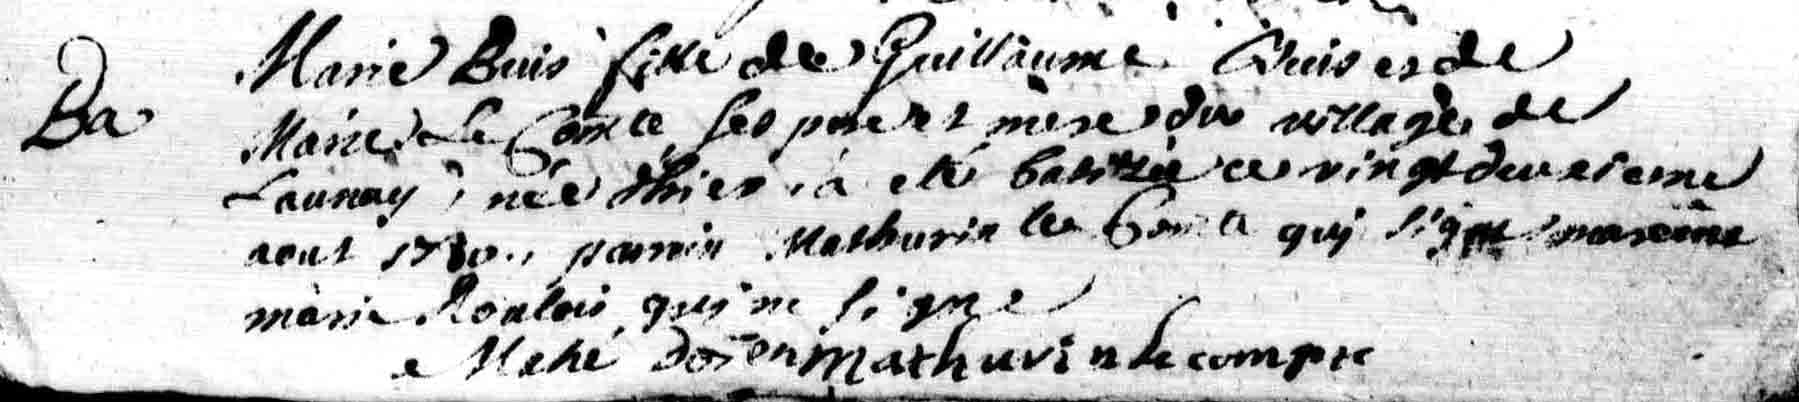 Ba
Marie Buis fille de Guillaume Buis et de
Marie Le Comte ses pere et mere du village de
Launay née d'hier à eté batizée ce vingt deuxieme
aout 1780. parrin Mathurin le Comte qui signe maraine
marie qui ne signe
Mehé doyen Mathurin le compte